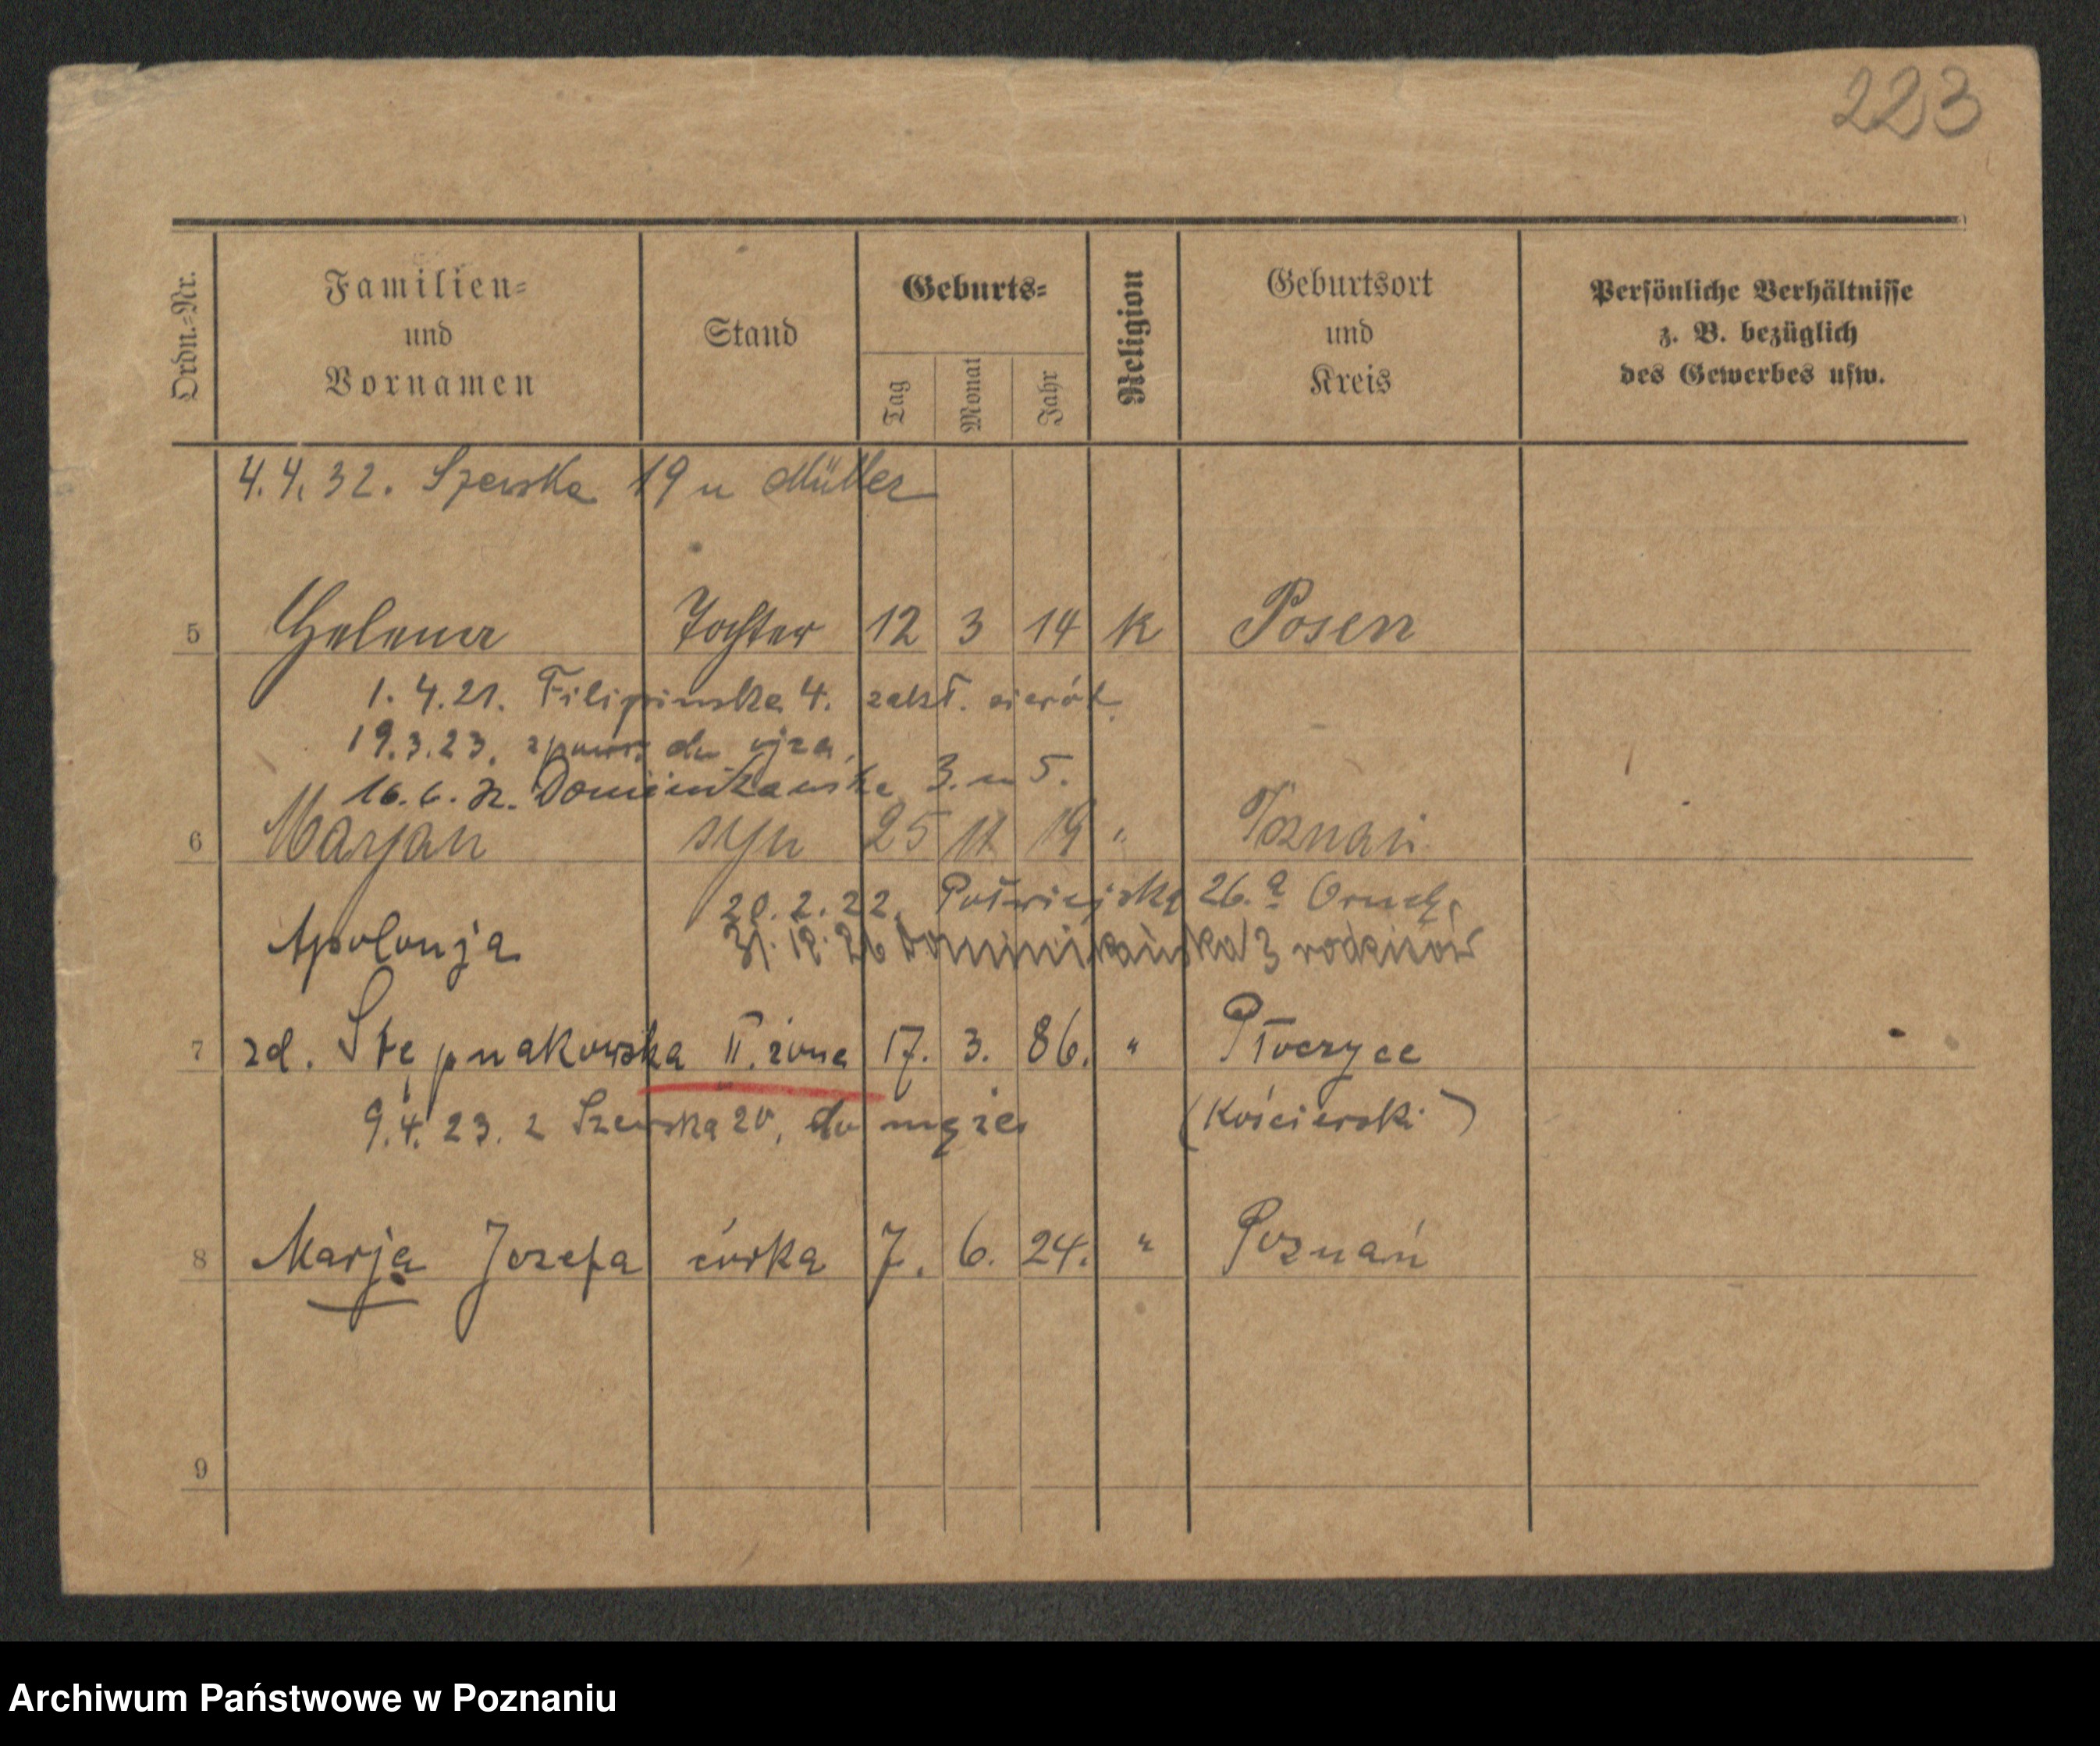 223
Ordn.-Nr.
Familien-
und
Vornamen
Stand
Geburts-
Tag
Monat
Jahr
Religion
Geburtsort
und
Kreis
Persönliche Verhältnisse
z. B. bezüglich
des Gewerbes usw.
4.4.32. Szewska 19 u Müller
5 Helena Tochter 12 3 14 k Posen
1.4.21. Filipinska 4. zakł. sierót.
19.3.23. zpowr. do ojca.
16.6. Dominikanska 3. m 5.
6 Marjan syn 25 11 19 " Poznań
20.2.22. Półwiejska 26.a
Apolonja
31.12.26 Dominikańska 3 rodziców
7 zd. Stępnakowska II. żona 17. 3. 86. " Płoczyce
9.4.23. z Szewska 20, do męża
(Kościerski)
8 Marja Jozefa córka 7. 6. 24. " Poznań
9
Archiwum Państwowe w Poznaniu